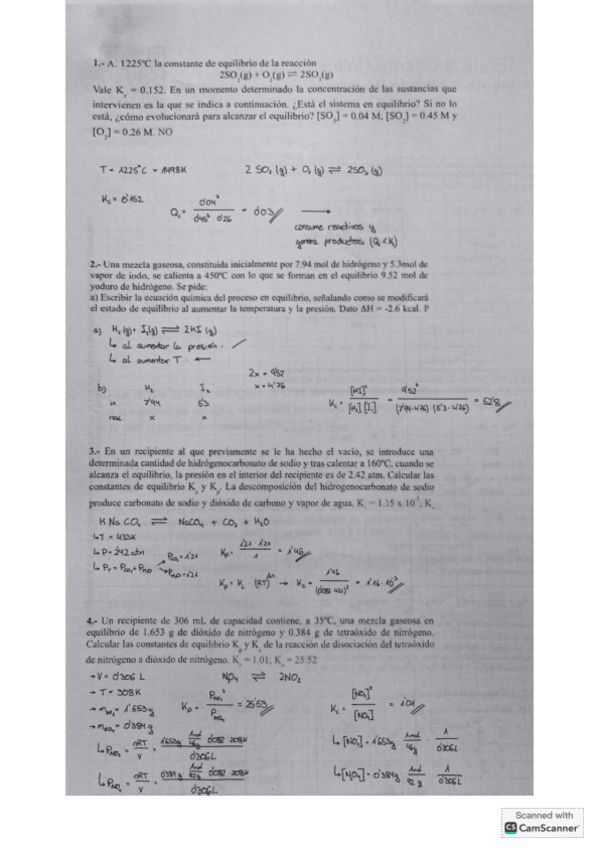 1.- A. 1225ºC la constante de equilibrio de la reacción
2SO₂(g) + O₂(g) ⇌ 2SO₃(g)
Vale K꜀ = 0.152. En un momento determinado la concentración de las sustancias que
intervienen es la que se indica a continuación. ¿Está el sistema en equilibrio? Si no lo
está, ¿cómo evolucionará para alcanzar el equilibrio? [SO₃] = 0.04 M; [SO₂] = 0.45 M y
[O₂] = 0.26 M. NO
T = 1225°C = 1498K 2 SO₂ (g) + O₂ (g) ⇌ 2SO₃ (g)
K꜀ = 0'152
Q꜀ = 0'04² / 0'45² 0'26 = 0'03 →
consume reactivos y
genera productos (Q꜀ < K)
2.- Una mezcla gaseosa, constituida inicialmente por 7.94 mol de hidrógeno y 5.3mol de
vapor de iodo, se calienta a 450ºC con lo que se forman en el equilibrio 9.52 mol de
yoduro de hidrógeno. Se pide:
a) Escribir la ecuación química del proceso en equilibrio, señalando como se modificará
el estado de equilibrio al aumentar la temperatura y la presión. Dato ΔH = -2.6 kcal. P
a) H₂(g) + I₂(g) ⇌ 2HI (g)
↳ al aumentar la presión:
↳ al aumentar T ←
2x = 9'52
x = 4'76
b) H₂ I₂
in 7'94 5'3
reac x x
K꜀ = [HI]² / [H₂] [I₂] = 9'52² / (7'94-4'76) (5'3-4'76) = 52'8
3.- En un recipiente al que previamente se le ha hecho el vacío, se introduce una
determinada cantidad de hidrógenocarbonato de sodio y tras calentar a 160ºC, cuando se
alcanza el equilibrio, la presión en el interior del recipiente es de 2.42 atm. Calcular las
constantes de equilibrio K꜀ y Kₚ. La descomposición del hidrogenocarbonato de sodio
produce carbonato de sodio y dióxido de carbono y vapor de agua. K꜀ = 1.15 x 10⁻³; K
H Na CO₃ ⇌ NaCO₃ + CO₂ + H₂O
↳ T = 433K
↳ P = 2'42 atm
↳ P_T = P_CO₂ + P_H₂O P_CO₂ = 1'21
P_H₂O = 1'21
Kₚ = 1'21 · 1'21 / 1 = 1'46
Kₚ = K꜀ (RT)^Δn → K꜀ = 1'46 / (0'082 433)² = 1'16 · 10⁻³
4.- Un recipiente de 306 mL de capacidad contiene, a 35ºC, una mezcla gaseosa en
equilibrio de 1.653 g de dióxido de nitrógeno y 0.384 g de tetraóxido de nitrógeno.
Calcular las constantes de equilibrio Kₚ y K꜀ de la reacción de disociación del tetraóxido
de nitrógeno a dióxido de nitrógeno. K꜀ = 1.01; Kₚ = 25.52
→ V = 0'306 L N₂O₄ ⇌ 2NO₂
→ T = 308K
→ m_NO₂ = 1'653g
→ m_N₂O₄ = 0'384g
Kₚ = P_NO₂² / P_N₂O₄ = 25'53
K꜀ = [NO₂]² / [N₂O₄] = 1'01
↳ P_NO₂ = nRT / V = 1'653g 1mol/46g 0'082 308K / 0'306L
↳ [NO₂] = 1'653g 1mol/46g · 1/0'306L
↳ P_N₂O₄ = nRT / V = 0'384g 1mol/92g 0'082 308K / 0'306L
↳ [N₂O₄] = 0'384g 1mol/92g · 1/0'306L
Scanned with
CS CamScanner